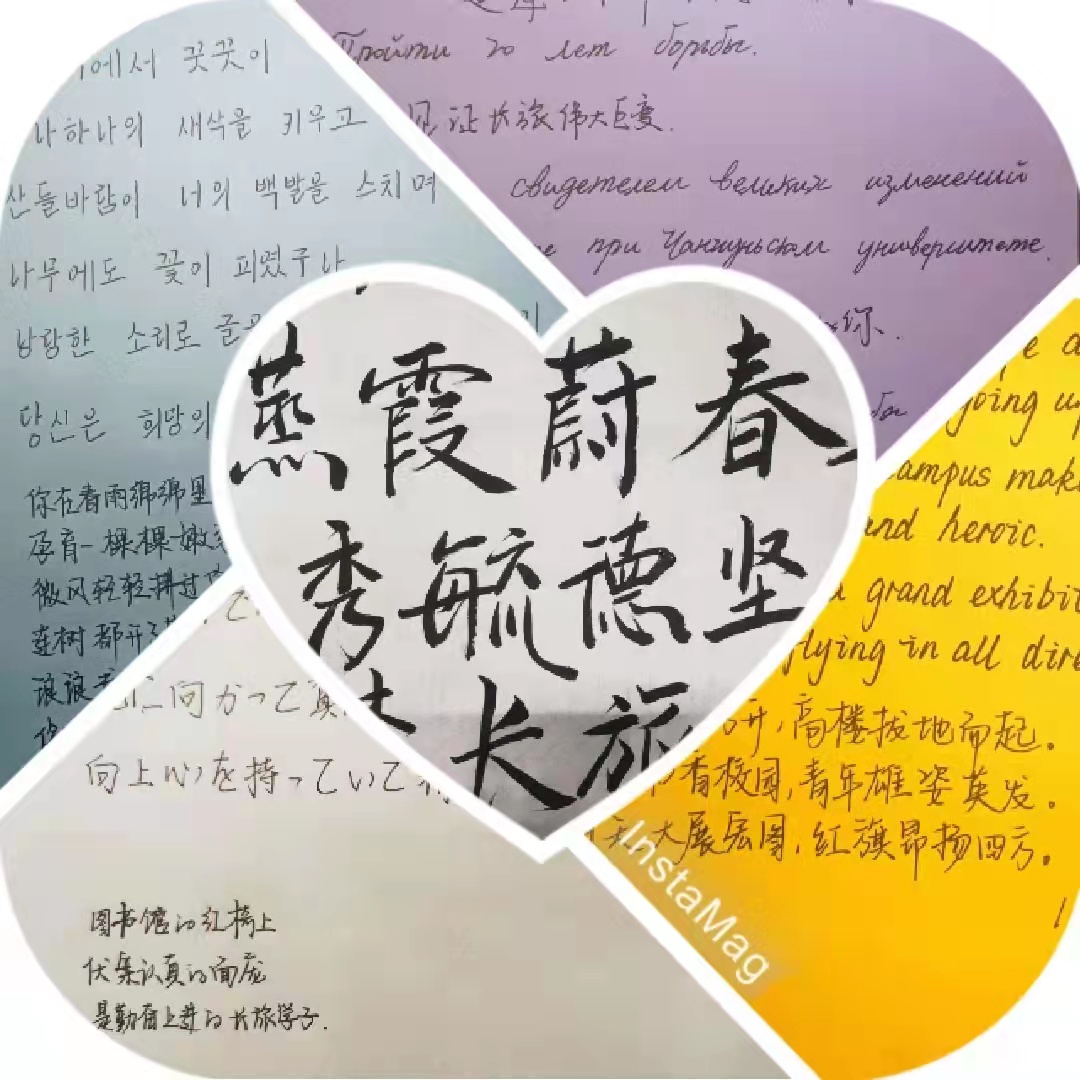 에서 꿋꿋이
나하나의 새싹을 키우고
산들바람이 너의 백발을 스치며
나무에도 꽃이 피였구나
낭랑한 소리로
당신은 희망의
你在春雨绵绵里
孕育一棵棵嫩
微风轻轻拂过
连树都开
Пройти 20 лет борьбы.
见证长旅伟大巨变.
свидетелем великих изменений
при Чанчуньском университете.
你.
蒸霞蔚春
秀毓德坚
长旅
going up
campus mak
and heroic.
a grand exhibit
flying in all dire
开,高楼拔地而起。
香校园,青年雄姿英发。
大展宏图,红旗昂扬四方。
に向かって真
向上心を持っていて
图书馆的红椅上
伏案认真的面庞
是勤奋上进的长旅学子.
InstaMag